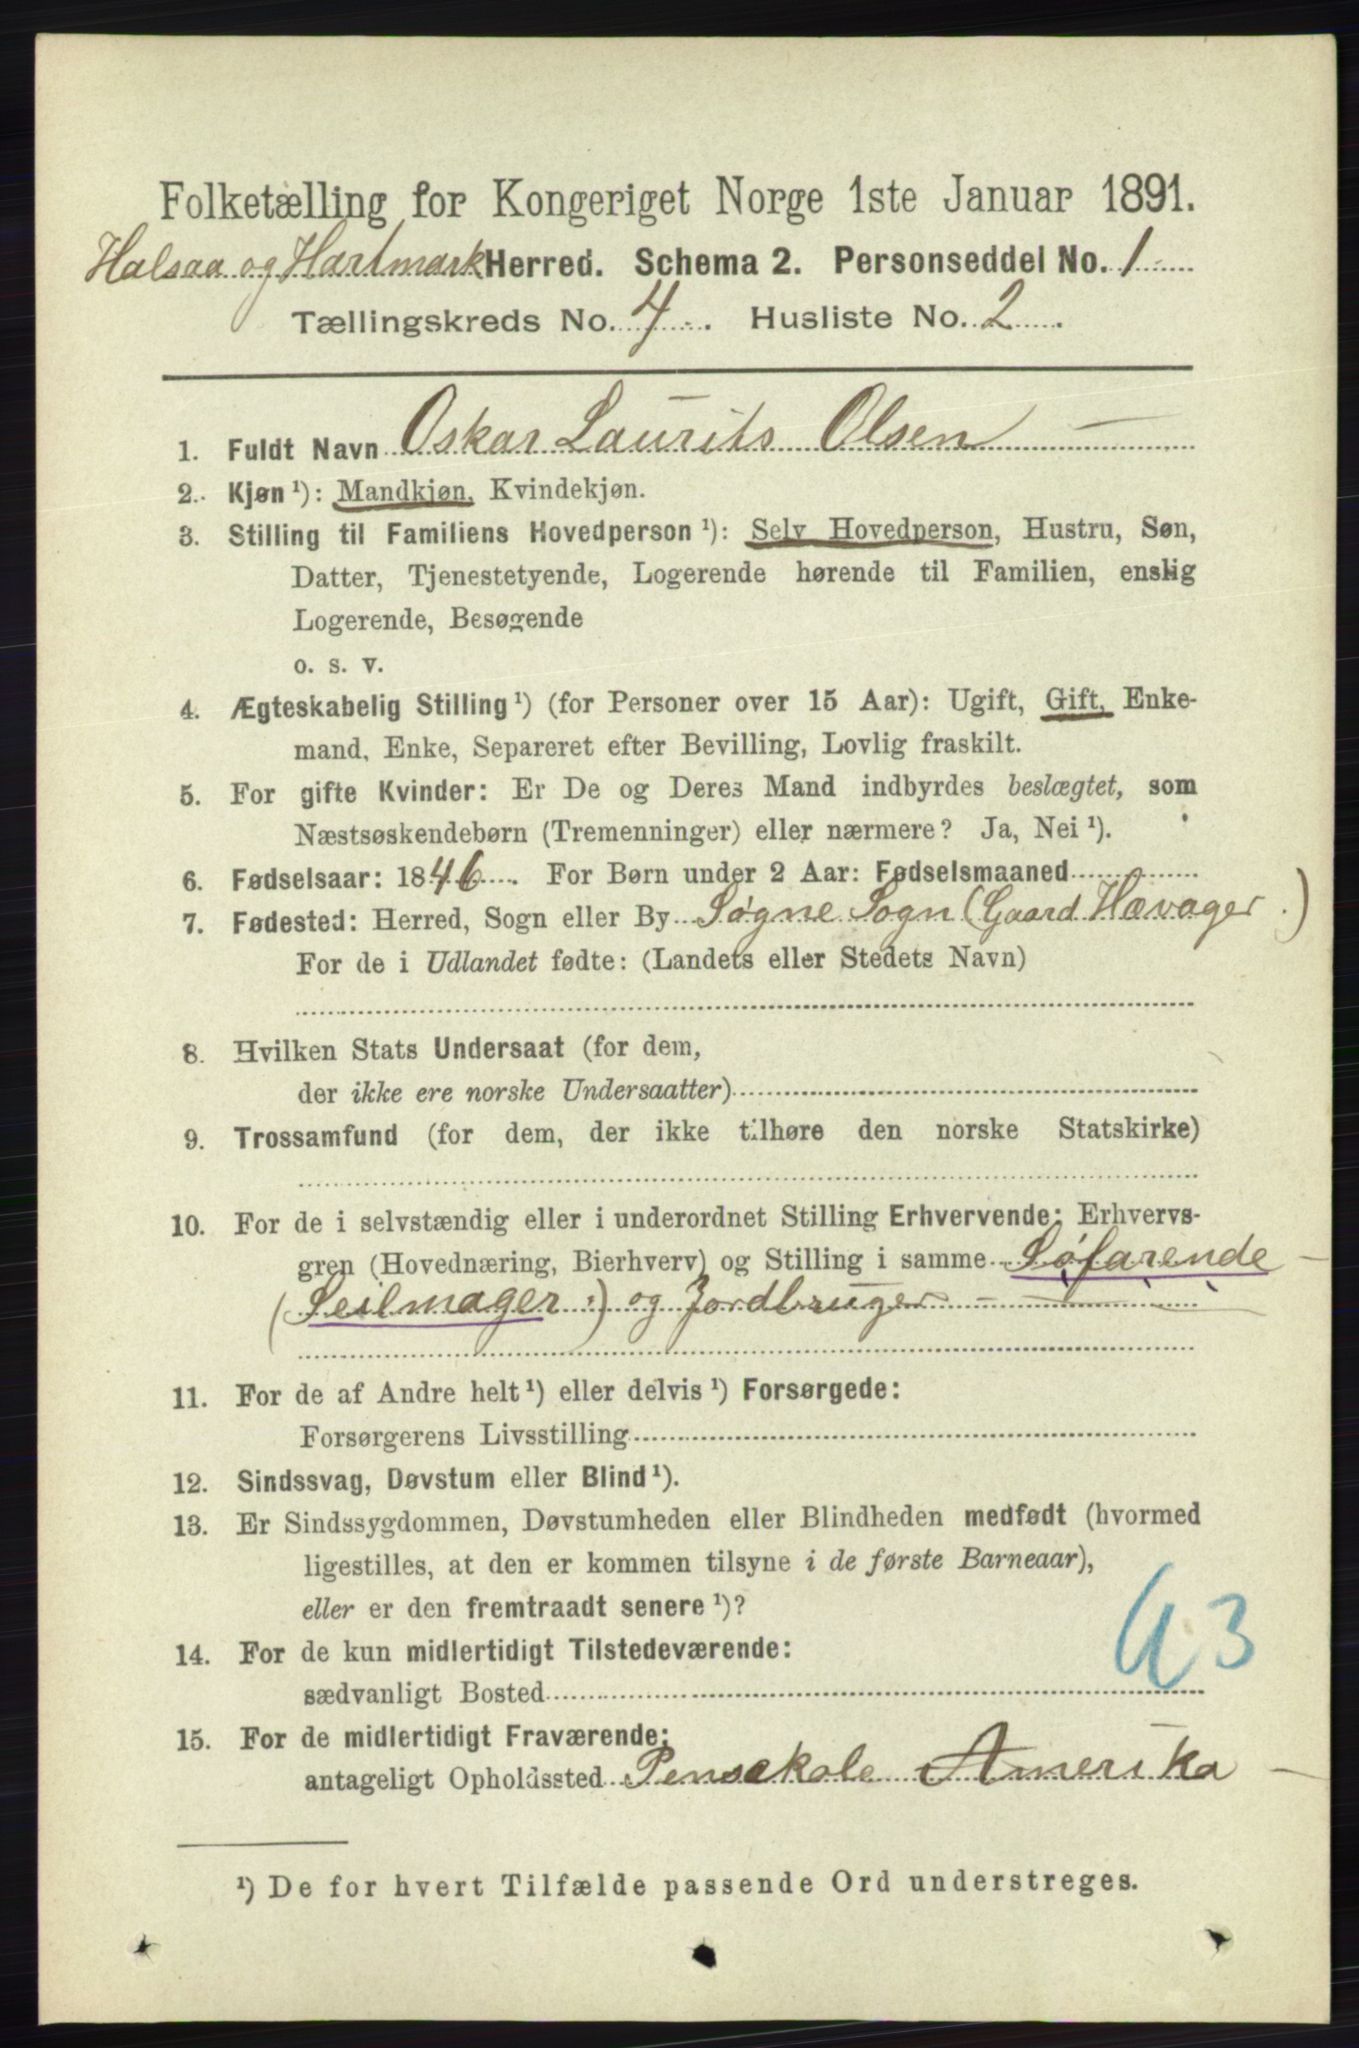 Folketælling for Kongeriget Norge 1ste Januar 1891.
Halsaa og Hartmark Herred. Schema 2. Personseddel No. 1
Tællingskreds No. 4. Husliste No. 2.
1. Fuldt Navn Oskar Laurits Olsen
2. Kjøn ¹): Mandkjøn, Kvindekjøn.
3. Stilling til Familiens Hovedperson ¹): Selv Hovedperson, Hustru, Søn,
Datter, Tjenestetyende, Logerende hørende til Familien, enslig
Logerende, Besøgende
o. s. v.
4. Ægteskabelig Stilling ¹) (for Personer over 15 Aar): Ugift, Gift, Enke-
mand, Enke, Separeret efter Bevilling, Lovlig fraskilt.
5. For gifte Kvinder: Er De og Deres Mand indbyrdes beslægtet, som
Næstsøskendebørn (Tremenninger) eller nærmere? Ja, Nei ¹).
6. Fødselsaar: 1846. For Børn under 2 Aar: Fødselsmaaned
7. Fødested: Herred, Sogn eller By Søgne Sogn (Gaard Hævager.)
For de i Udlandet fødte: (Landets eller Stedets Navn)
8. Hvilken Stats Undersaat (for dem,
der ikke ere norske Undersaatter)
9. Trossamfund (for dem, der ikke tilhøre den norske Statskirke)
10. For de i selvstændig eller i underordnet Stilling Erhvervende: Erhvervs-
gren (Hovednæring, Bierhverv) og Stilling i samme Søfarende
(Seilmager :) og Jordbruger
11. For de af Andre helt ¹) eller delvis ¹) Forsørgede:
Forsørgerens Livsstilling
12. Sindssvag, Døvstum eller Blind ¹).
13. Er Sindssygdommen, Døvstumheden eller Blindheden medfødt (hvormed
ligestilles, at den er kommen tilsyne i de første Barneaar),
eller er den fremtraadt senere ¹)?
14. For de kun midlertidigt Tilstedeværende:
sædvanligt Bosted
15. For de midlertidigt Fraværende:
antageligt Opholdssted Pensekole Amerika
¹) De for hvert Tilfælde passende Ord understreges.